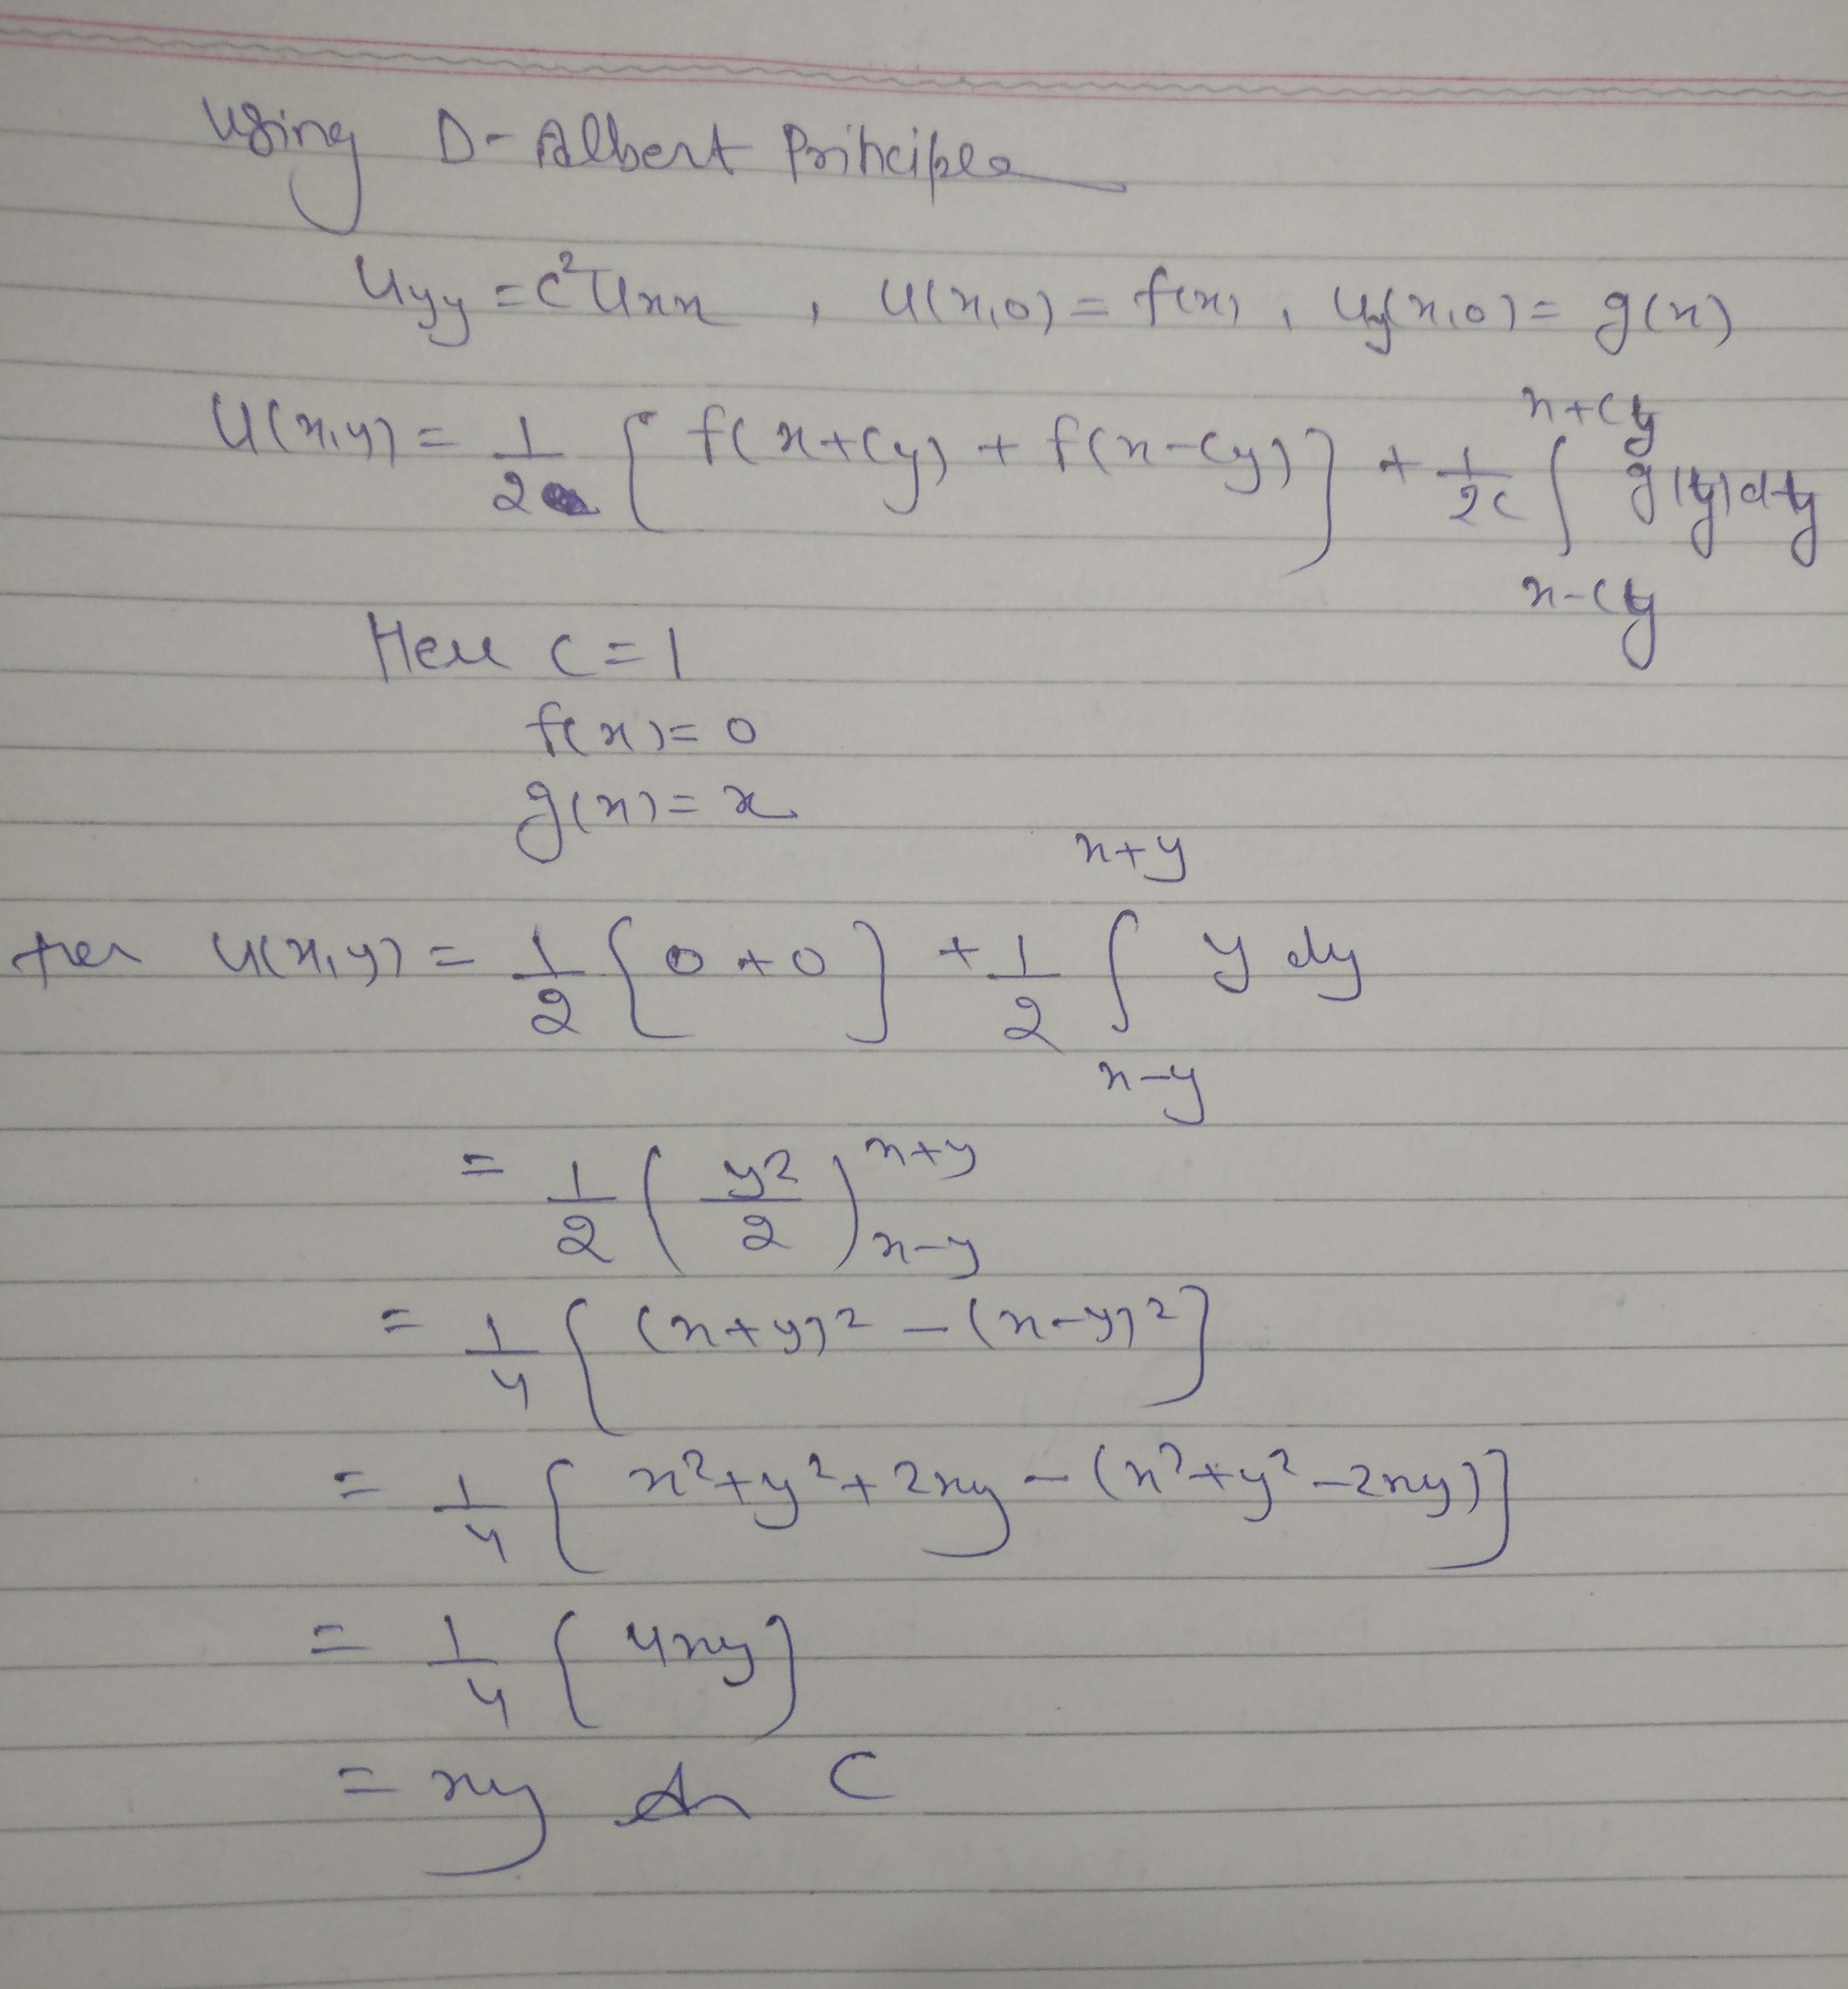 Using D-Albert Principle
Uyy = c²Uxx , U(x,0) = f(x) , Uy(x,0) = g(x)
U(x,y) = 1/2 { f(x+cy) + f(x-cy) } + 1/2c ∫_{x-cy}^{x+cy} g(y)dy
Here c=1
f(x)=0
g(x)=x
U(x,y) = 1/2 { 0+0 } + 1/2 ∫_{x-y}^{x+y} y dy
= 1/2 ( y²/2 )_{x-y}^{x+y}
= 1/4 { (x+y)² - (x-y)² }
= 1/4 { x²+y²+2xy - (x²+y²-2xy) }
= 1/4 { 4xy }
= xy C